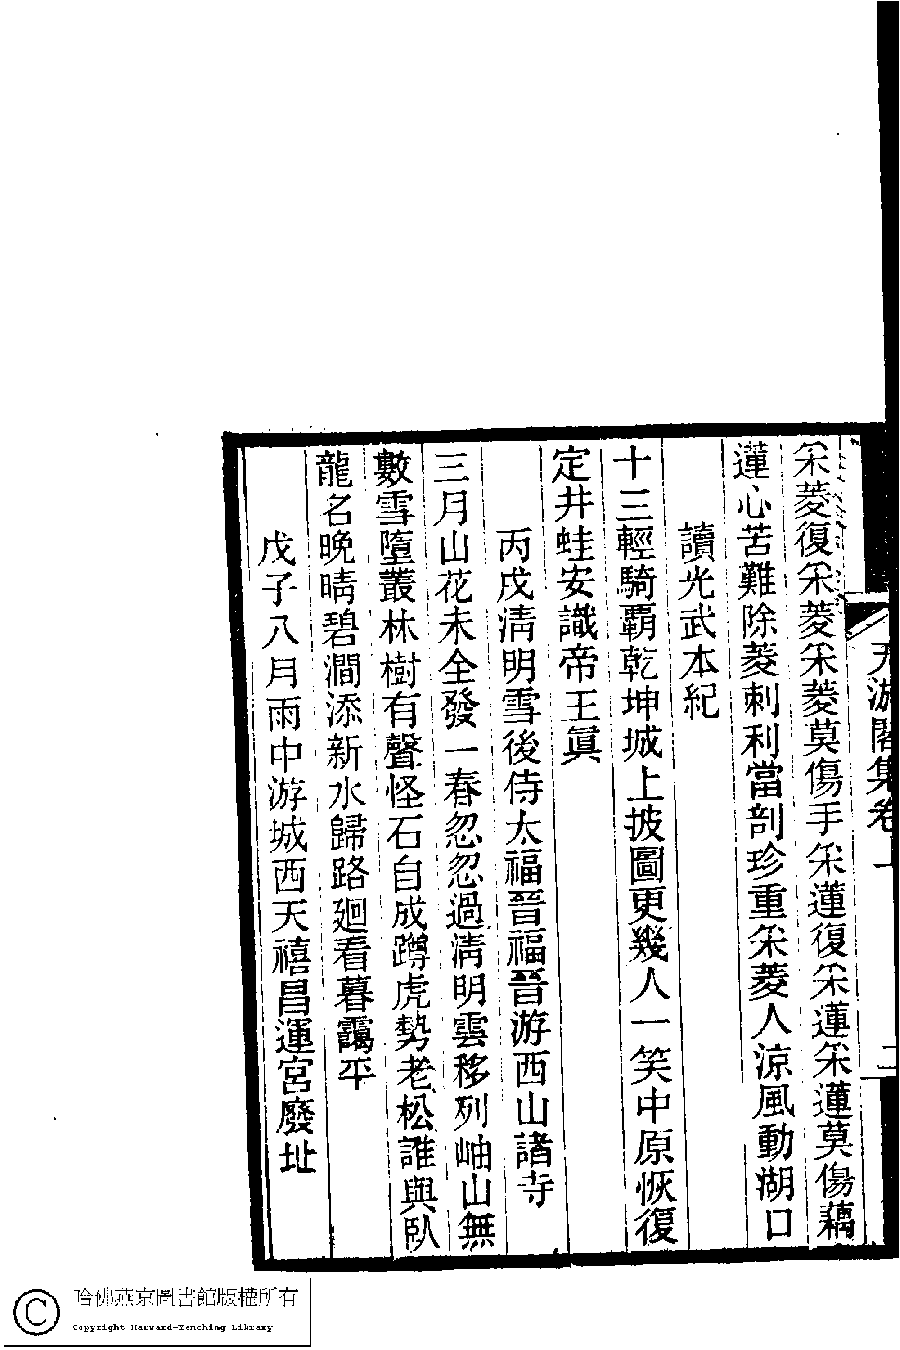 天游閣集卷一
二
采菱復采菱采菱莫傷手采蓮復采蓮采蓮莫傷藕
蓮心苦難除菱刺利當剖珍重采菱人涼風動湖口
讀光武本紀
十三輕騎覇乾坤城上披圖更幾人一笑中原恢復
定井蛙安識帝王眞
丙戌淸明雪後侍太福晉福晉游西山諸寺
三月山花未全發一春忽忽過淸明雲移列岫山無
數雪墮叢林樹有聲怪石自成蹲虎勢老松誰與臥
龍名晚晴碧澗添新水歸路廻看暮靄平
戊子八月雨中游城西天禧昌運宮廢址
哈佛燕京圖書館版權所有
Copyright Harvard-Yenching Library